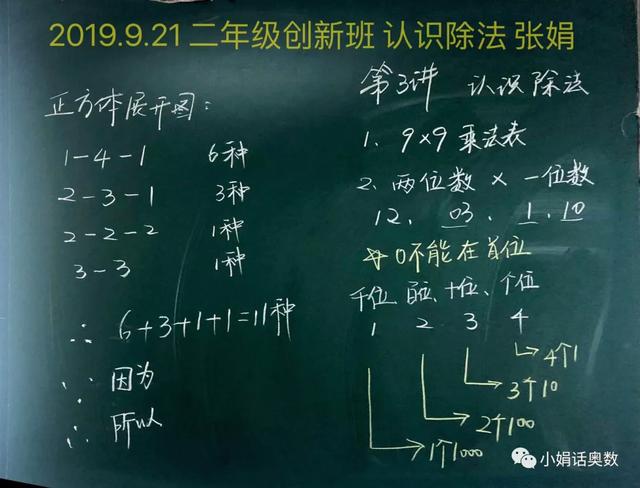 2019.9.21 二年级创新班 认识除法 张娟
正方体展开图:
1-4-1 6种
2-3-1 3种
2-2-2 1种
3-3 1种
∴ 6+3+1+1=11种
∵ 因为
∴ 所以
第3讲 认识除法
1. 9×9 乘法表
2. 两位数 × 一位数
12. 03. 1.10
0不能在首位
千位 百位、十位、个位
1 2 3 4
4个1
3个10
2个100
1个1000
小娟话奥数